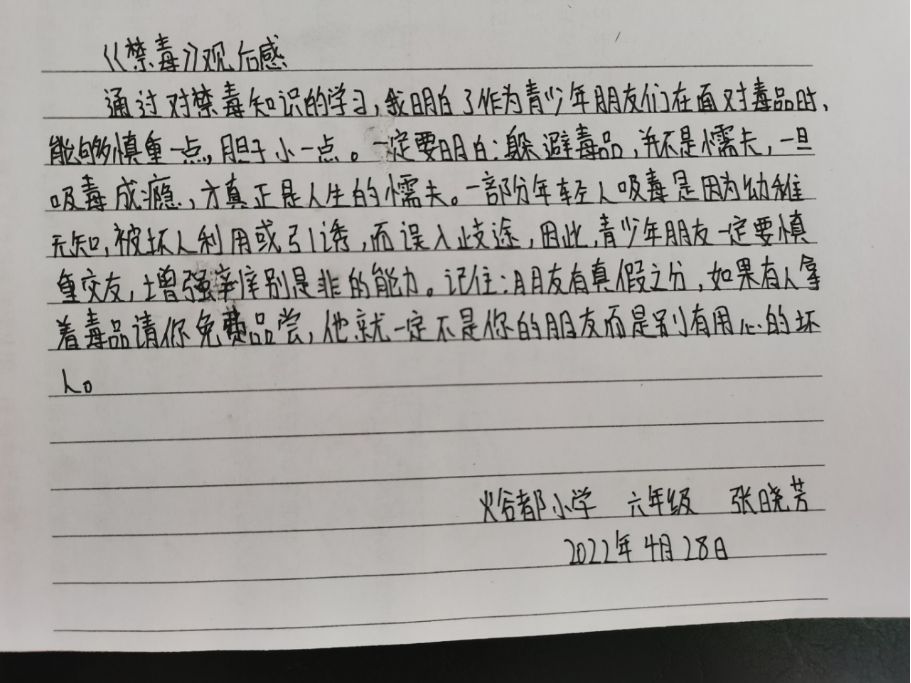 《禁毒》观后感
通过对禁毒知识的学习,我明白了作为青少年朋友们在面对毒品时,
能够慎重一点,胆子小一点。一定要明白:躲避毒品,并不是懦夫,一旦
吸毒成瘾,才真正是人生的懦夫。一部分年轻人吸毒是因为幼稚
无知,被坏人利用或引诱,而误入歧途,因此,青少年朋友一定要慎
重交友,增强辨别是非的能力。记住:朋友有真假之分,如果有人拿
着毒品请你免费品尝,他就一定不是你的朋友而是别有用心的坏
人。
都小学 六年级 张晓芳
2022年4月28日